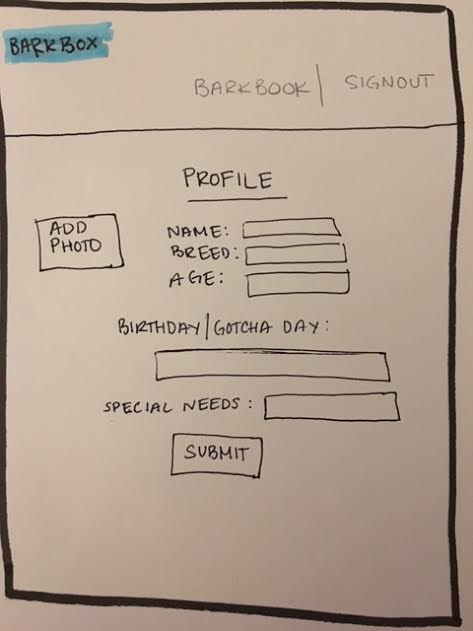 BARKBOX
BARKBOOK | SIGNOUT
PROFILE
ADD
PHOTO
NAME:
BREED:
AGE:
BIRTHDAY/GOTCHA DAY:
SPECIAL NEEDS:
SUBMIT